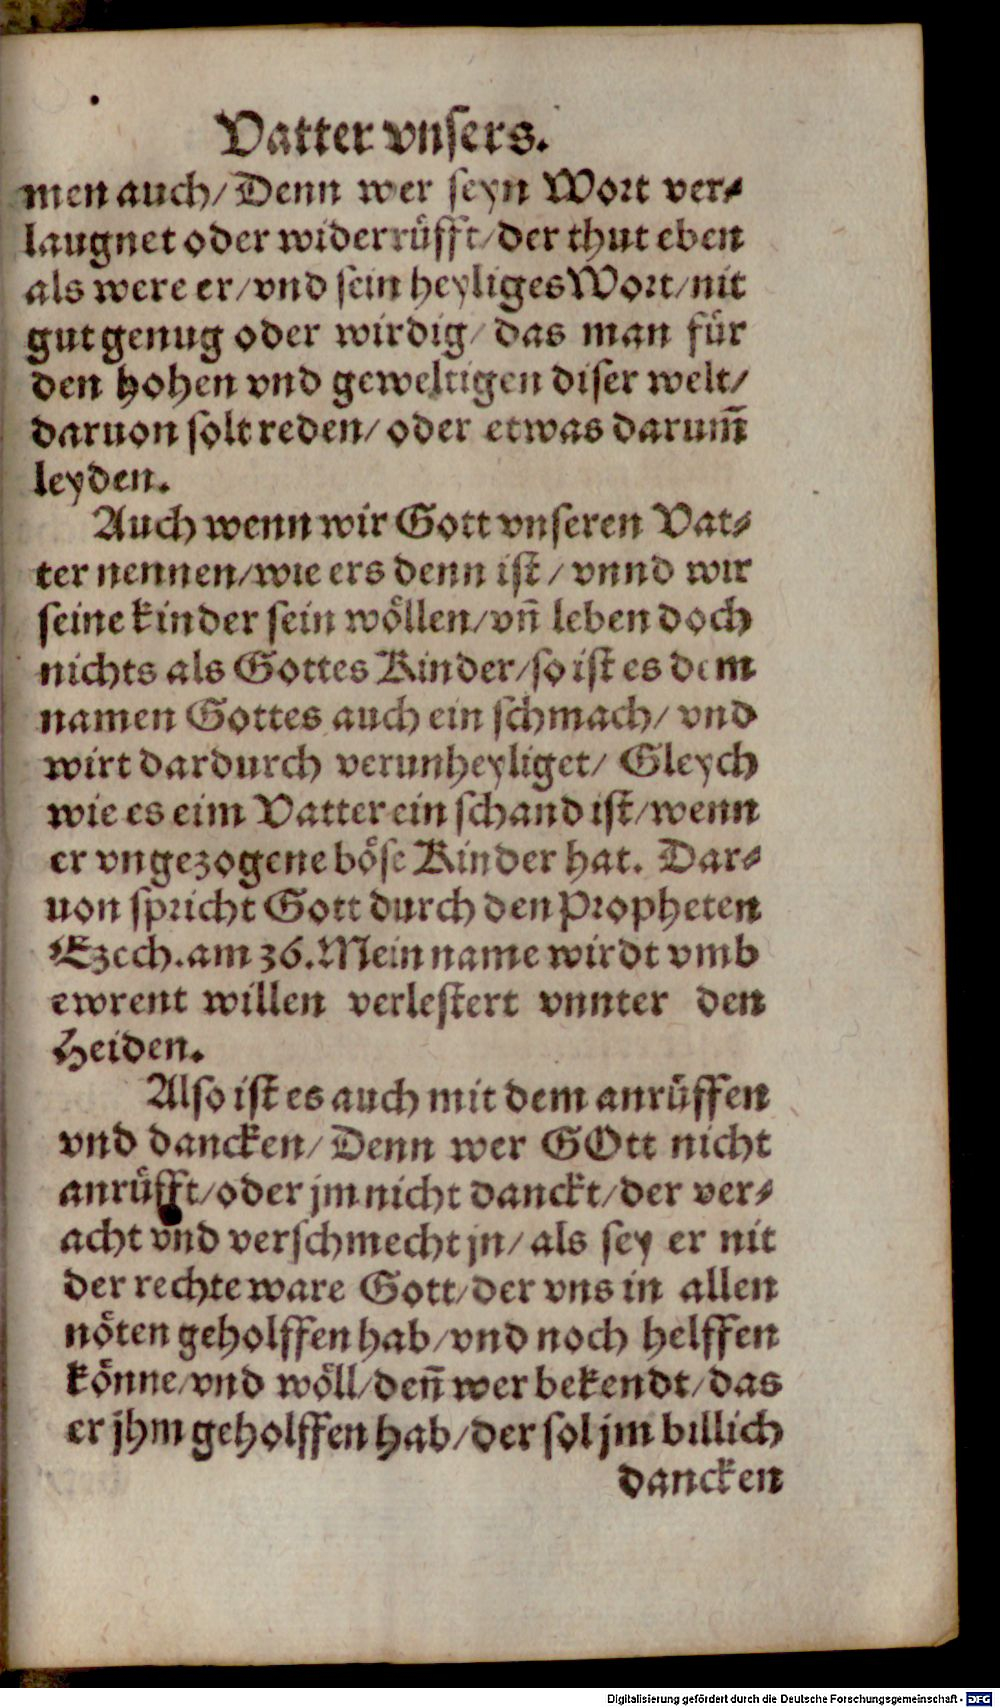 Vatter vnsers.
men auch/ Denn wer seyn Wort ver-
laugnet oder widerrüfft/ der thut eben
als were er/ vnd sein heyliges Wort/ nit
gut genug oder wirdig/ das man für
den hohen vnd geweltigen diser welt/
daruon solt reden/ oder etwas darum̄
leyden.
Auch wenn wir Gott vnseren Vat-
ter nennen/ wie ers denn ist/ vnnd wir
seine kinder sein wöllen/ vn̄ leben doch
nichts als Gottes Kinder/ so ist es dem
namen Gottes auch ein schmach/ vnd
wirt dardurch verunheyliget/ Gleych
wie es eim Vatter ein schand ist/ wenn
er vngezogene böse Kinder hat. Dar-
uon spricht Gott durch den Propheten
Ezech. am 36. Mein name wirdt vmb
ewrent willen verlestert vnnter den
Heiden.
Also ist es auch mit dem anrüffen
vnd dancken/ Denn wer GOtt nicht
anrüfft/ oder jm nicht danckt/ der ver-
acht vnd verschmecht jn/ als sey er nit
der rechte ware Gott/ der vns in allen
nöten geholffen hab/ vnd noch helffen
könne/ vnd wöll/ den̄ wer bekendt/ das
er jhm geholffen hab/ der sol jm billich
dancken
Digitalisierung gefördert durch die Deutsche Forschungsgemeinschaft - DFG